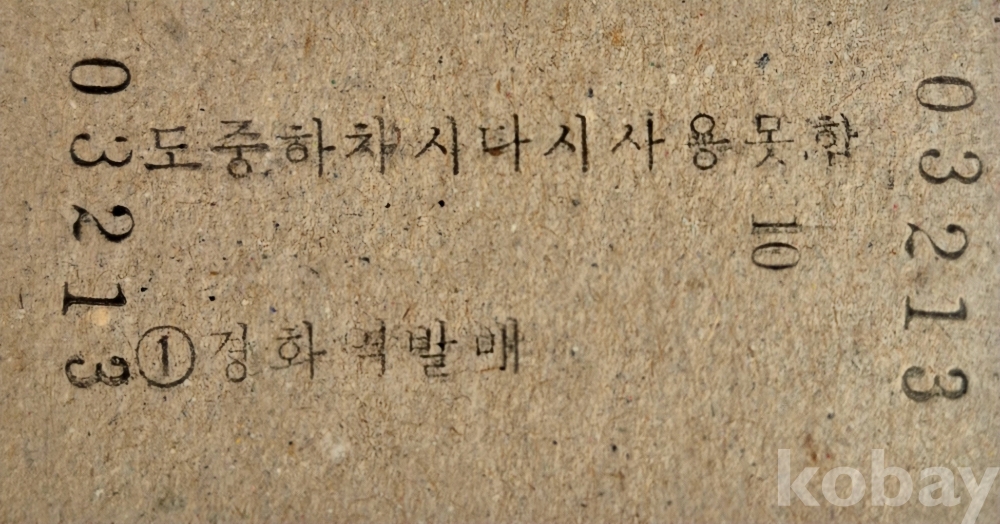 03213
도중하차시다시사용못함
10
①경화역발매
03213
kobay